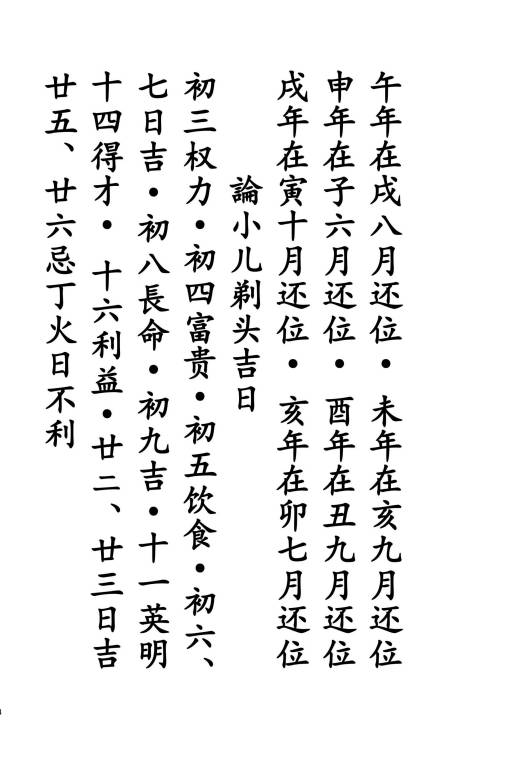 午年在戌八月还位·未年在亥九月还位
申年在子六月还位·酉年在丑九月还位
戌年在寅十月还位·亥年在卯七月还位
論小儿剃头吉日
初三权力·初四富贵·初五饮食·初六、
七日吉·初八長命·初九吉·十一英明
十四得才·十六利益·廿二、廿三日吉
廿五、廿六忌丁火日不利